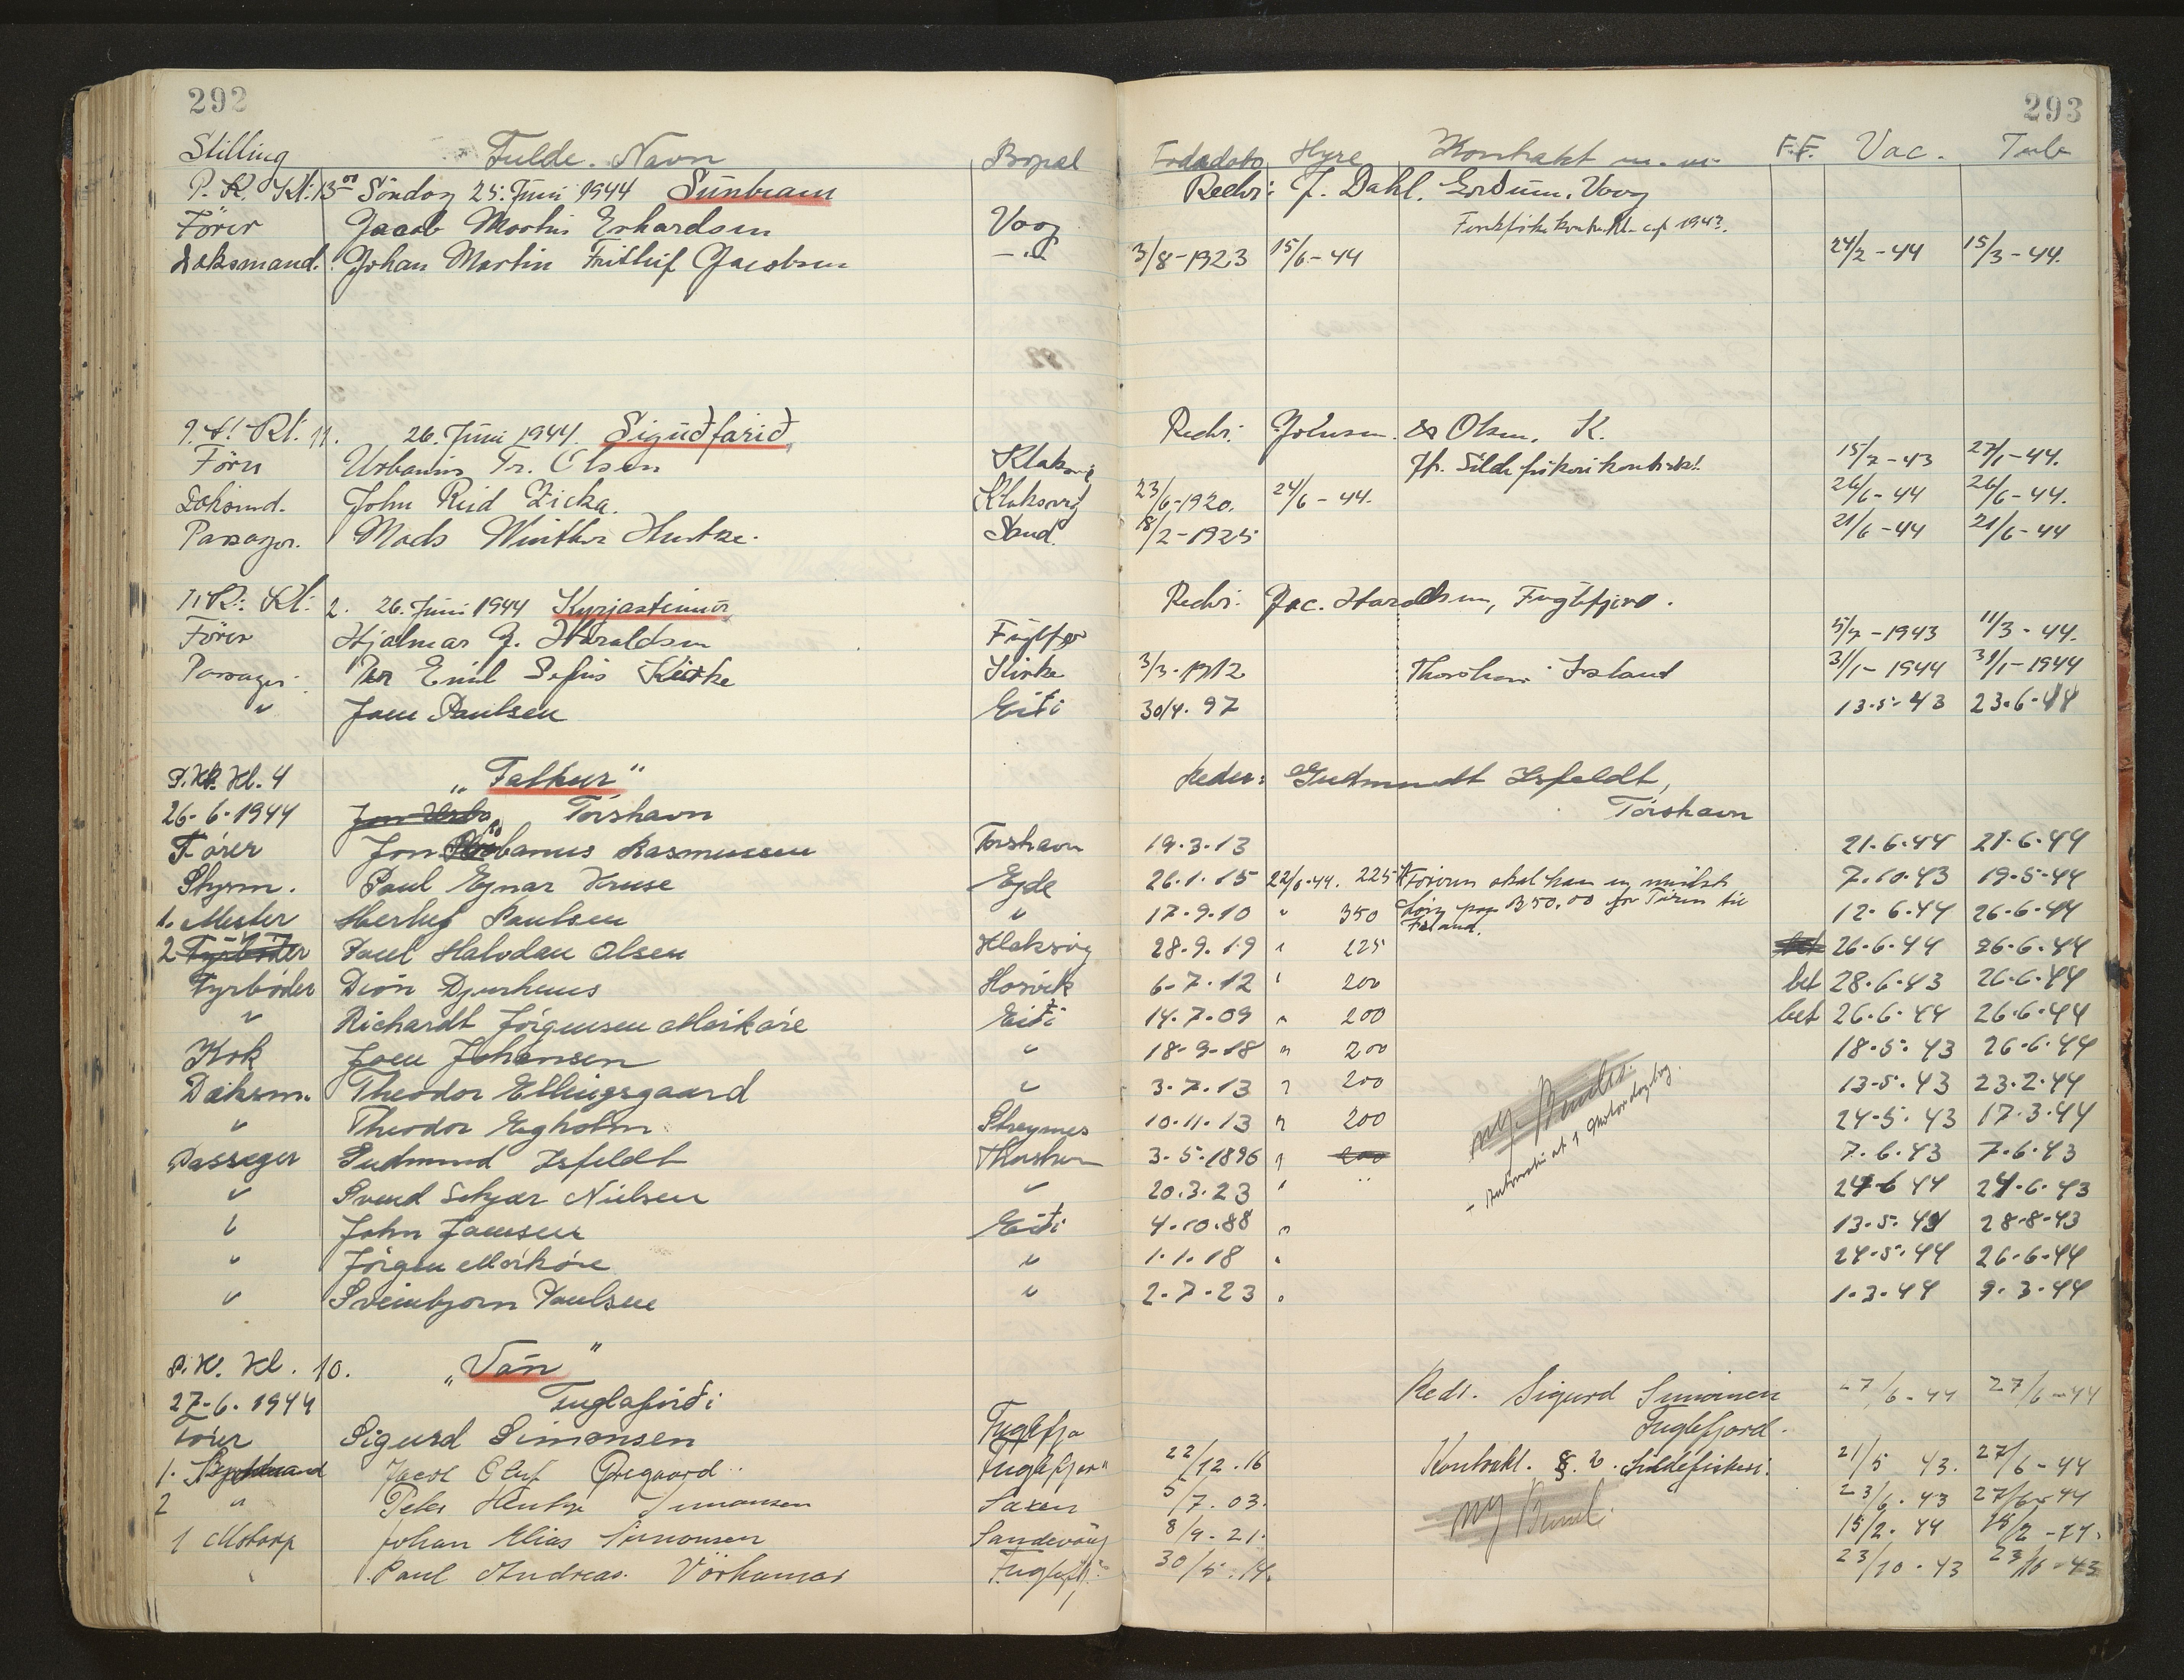 292
293
Stilling Fulde Navn Bopæl Fødsdato Hyre Kontrakt m.m. F.F. Vac. Tub
P.K. Kl. 13 00 Söndag 25. Juni 1944 Sunbeam Redr: J. Dahl, Vaag
Förer Jacob Martin Erhardsen Vaag
Daksmand. Johan Martin Frithif Jacobsen -"- 3/8-1923 15/6-44 24/2-44 15/3-44.
Kl. 11. 26. Juni 1944. Siguðfarið Redr: & Olsen, K.
Förer Urbanus Fr. Olsen Klaksvig Sildefiskerikontrakt 15/7-43 27/1-44.
Daksmd. John Reid Zicka. Klaksvig 23/6-1920. 24/6-44. 26/6-44 26/6-44.
Passager. Mads Winther Sand. 18/2-1925 21/6-44 21/6-44
Kl. 2. 26. Juni 1944 Kyrjasteinur Redr: Jac. Haraldsen, Fuglefjord.
Förer Hjalmar J. Haraldsen Fuglefjo 5/7-1943 11/3-44.
Passager. Per Emil Kirke Kirke 3/3-1912 Thorshavn Island 31/1-1944 31/1-1944
" Joen Paulsen Eiði 30/4.97 13.5.43 23.6.44
P.K. Kl. 4 "Falkur" Reder: Gudmundt Isfeldt,
26-6-1944 Torshavn Tórshavn
Förer Jon Urbanus Rasmussen Torshavn 19.3.13 21.6.44 21.6.44
Styrm. Paul Ejnar Kruse Ejde 26.1.15 22/6-44. 225 Föreren skal have en 7.10.43 19.5.44
1. Mester Herluf Paulsen " 17.9.10 " 350 350,00 for Turen til 12.6.44 26.6.44
Island.
2 Fyrböder Poul Halvdan Olsen Klaksvig 28.9.19 " 225 bet 26.6.44 26.6.44
Fyrböder Dion Djurhuus Hosvik 6.7.12 " 200 bet 28.6.43 26.6.44
" Richardt Jörgensen Mörköre Eiði 14.7.09 " 200 bet 26.6.44 26.6.44
Kok Joen Johansen " 18-9-18 " 200 18.5.43 26.6.44
Daksm. Theodor Ellingsgaard " 3.7.13 " 200 13.5.43 23.2.44
" Theodor Egholm Streymnes 10.11.13 " 200 24.5.43 17.3.44
Passager Gudmund Isfeldt Thorshavn 3.5.1896 " 200 7.6.43 7.6.43
" Svend Nielsen " 20.3.23 " 24.6 44 24.6.43
" John Joensen Eiði 4.10.88 " 13.5.44 28.8.43
" Jörgen Mörköre " 1.1.18 " 24.5.44 26.6.44
" Sveinbjorn Poulsen " 2.7.23 " 1.3.44 9.3.44
P.K. Kl. 10. "Ván"
27-6-1944 Fuglafirði Redr. Sigurd Simonsen 27/6-44 27/6-44
Förer Sigurd Simonsen Fuglefjo Fuglefjord.
1. Jacob Oluf Öregaard. Fuglefjor" 22/12.16 Kontrakt. Sildefiskeri. 21/5 43. 27/6-44
2 " Peter Simonsen Saxen 5/7.03. ny 23/6.43 27/6-44
1 Motorp Johan Elias Simonsen Sandevaag 8/9.21. 15/2.44
" Paul Andreas Vörhamar Fuglefj: 30/5.14. 23/10.43 23/10-43